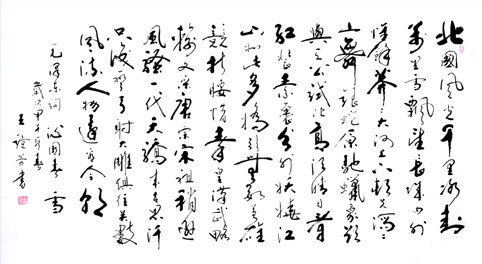 北國風光千里冰封
萬里雪飄望長城内外
惟餘莽莽大河上下頓失滔滔
山舞銀蛇原馳蠟象欲
與天公試比高須晴日看
紅裝素裹分外妖嬈江
山如此多嬌引無數英雄
競折腰惜秦皇漢武略
輸文采唐宗宋祖稍遜
風騷一代天驕成吉思汗
只識彎弓射大雕俱往矣數
風流人物還看今朝
毛澤東詞 沁園春 雪
歲次甲午年春